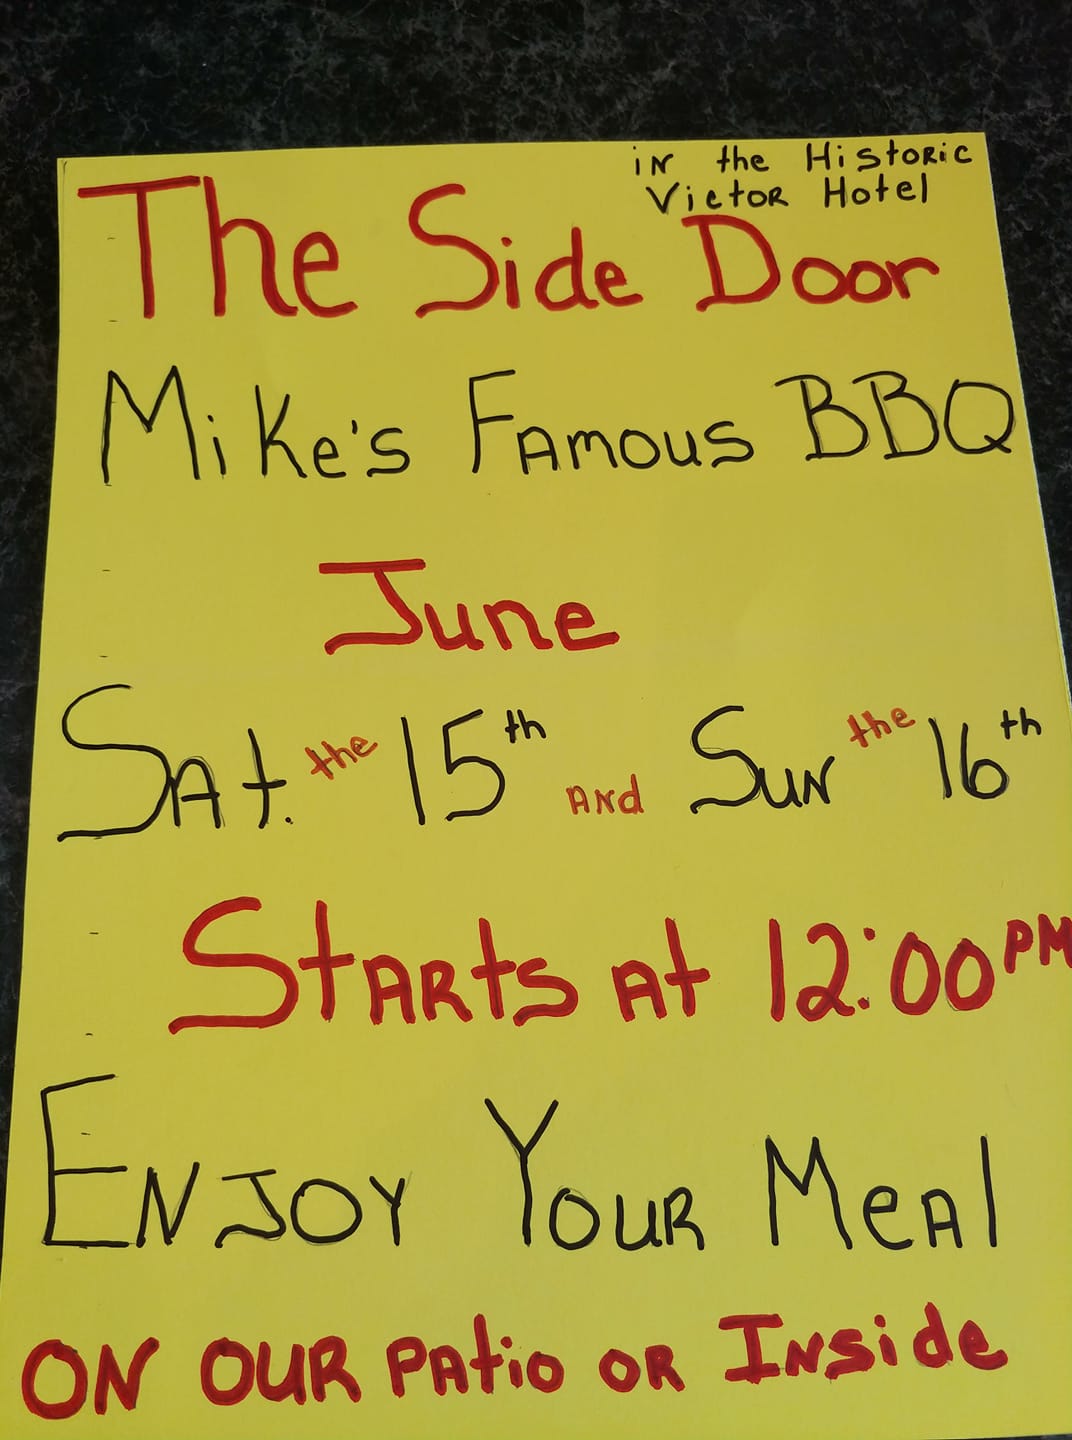 in the Historic
Victor Hotel
The Side Door
Mike's Famous BBQ
June
Sat. the 15th and Sun the 16th
Starts at 12:00 PM
Enjoy Your Meal
ON OUR PAtio OR INSide